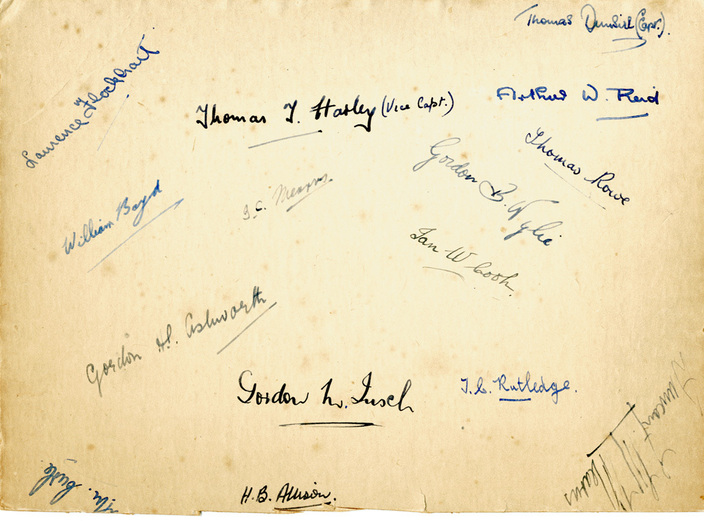 Thomas Dunsire (Capt.).
Laurence Flockhart
Thomas T. Harley (Vice Capt.)
Arthur W. Reid
Thomas Rowe
Gordon B. Wylie
William Boyd
J.C. Mearns
Ian W Cook.
Gordon H. Ashworth
Gordon W. Insch
T.C. Rutledge.
H.B. Allison.